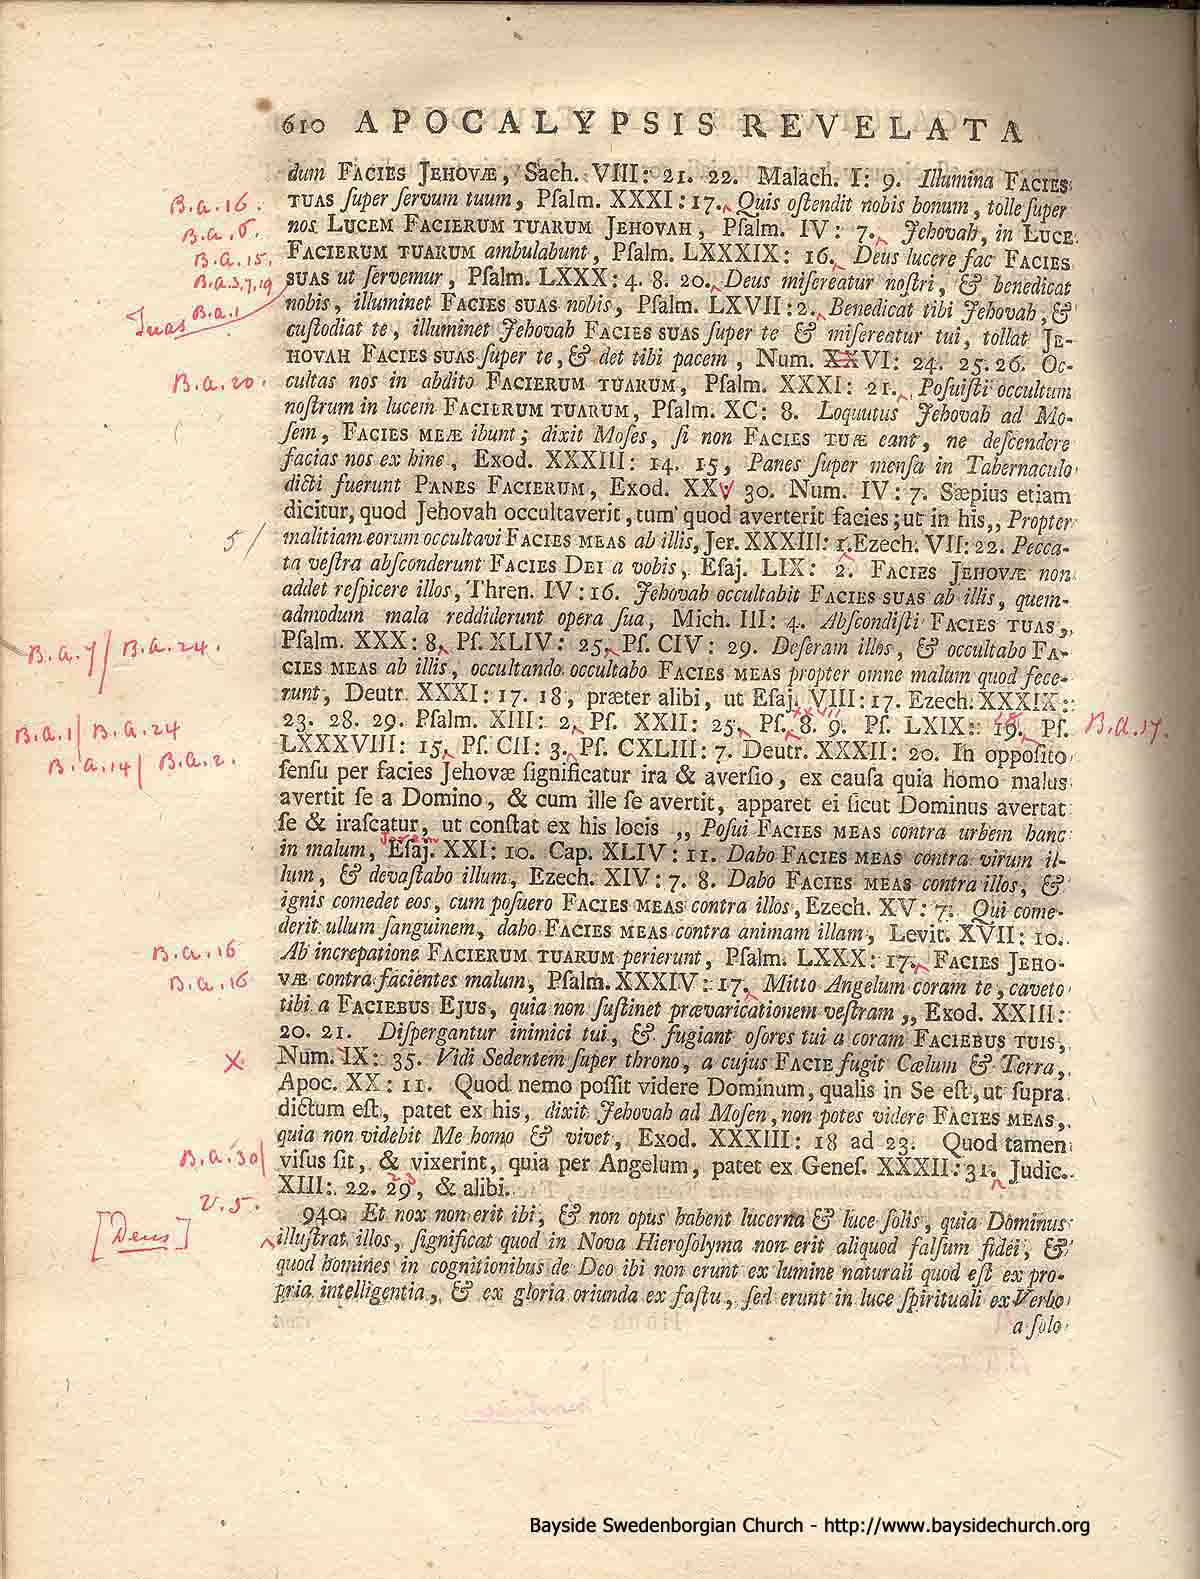 610 APOCALYPSIS REVELATA
dum FACIES JEHOVÆ, Sach. VIII: 21. 22. Malach. I: 9. Illumina FACIES
B.a.16. TUAS ſuper ſervum tuum, Pſalm. XXXI: 17. Quis oſtendit nobis bonum, tolle ſuper
B.a. nos LUCEM FACIERUM TUARUM JEHOVAH, Pſalm. IV: 7. Jehovah, in LUCE
B.a.15. FACIERUM TUARUM ambulabunt, Pſalm. LXXXIX: 16. Deus lucere fac FACIES
B.a.3,7,19 SUAS ut ſervemur, Pſalm. LXXX: 4. 8. 20. Deus miſereatur noſtri, & benedicat
Tuas B.a.1 nobis, illuminet FACIES SUAS nobis, Pſalm. LXVII: 2. Benedicat tibi Jehovah, &
cuſtodiat te, illuminet Jehovah FACIES SUAS ſuper te & miſereatur tui, tollat JE-
HOVAH FACIES SUAS ſuper te, & det tibi pacem, Num. XXVI: 24. 25. 26. Oc-
B.a.20. cultas nos in abdito FACIERUM TUARUM, Pſalm. XXXI: 21. Poſuiſti occultum
noſtrum in lucem FACIERUM TUARUM, Pſalm. XC: 8. Loquutus Jehovah ad Mo-
ſem, FACIES MEÆ ibunt; dixit Moſes, ſi non FACIES TUÆ eant, ne deſcendere
facias nos ex hinc, Exod. XXXIII: 14. 15, Panes ſuper menſa in Tabernaculo
dicti fuerunt PANES FACIERUM, Exod. XXV 30. Num. IV: 7. Sæpius etiam
dicitur, quod Jehovah occultaverit, tum quod averterit facies; ut in his,, Propter
5/ malitiam eorum occultavi FACIES MEAS ab illis, Jer. XXXIII: Ezech. VII: 22. Pecca-
ta veſtra abſconderunt FACIES DEI a vobis, Eſaj. LIX: 2. FACIES JEHOVÆ non
addet reſpicere illos, Thren. IV: 16. Jehovah occultabit FACIES SUAS ab illis, quem-
admodum mala reddiderunt opera ſua, Mich. III: 4. Abſcondiſti FACIES TUAS,,
B.a.7/ B.a.24. Pſalm. XXX: 8, Pſ. XLIV: 25, Pſ. CIV: 29. Deſeram illos, & occultabo FA-
CIES MEAS ab illis, occultando occultabo FACIES MEAS propter omne malum quod fece-
runt, Deutr. XXXI: 17. 18, præter alibi, ut Eſaj. VIII: 17. Ezech. XXXIX:
B.a.1/ B.a.24 23. 28. 29. Pſalm. XIII: 2, Pſ. XXII: 25, Pſ. XXVII 8. 9. Pſ. LXIX: 19. 18 Pſ. B.a.17.
B.a.14/ B.a.2. LXXXVIII: 15, Pſ. CII: 3. Pſ. CXLIII: 7. Deutr. XXXII: 20. In oppoſito
ſenſu per facies Jehovæ ſignificatur ira & averſio, ex cauſa quia homo malus
avertit ſe a Domino, & cum ille ſe avertit, apparet ei ſicut Dominus avertat
ſe & iraſcatur, ut conſtat ex his locis ,, Poſui FACIES MEAS contra urbem hanc
in malum, Jerem Eſaj. XXI: 10. Cap. XLIV: 11. Dabo FACIES MEAS contra virum il-
lum, & devaſtabo illum, Ezech. XIV: 7. 8. Dabo FACIES MEAS contra illos, &
ignis comedet eos, cum poſuero FACIES MEAS contra illos, Ezech. XV: 7. Qui come-
derit ullum ſanguinem, dabo FACIES MEAS contra animam illam, Levit. XVII: 10.
B.a.16 Ab increpatione FACIERUM TUARUM perierunt, Pſalm. LXXX: 17. FACIES JEHO-
B.a.16 VÆ contra facientes malum, Pſalm. XXXIV: 17. Mitto Angelum coram te, caveto
tibi a FACIEBUS EJUS, quia non ſuſtinet prævaricationem veſtram ,, Exod. XXIII:
20. 21. Diſpergantur inimici tui, & fugiant oſores tui a coram FACIEBUS TUIS,
X Num. IX: 35. Vidi Sedentem ſuper throno, a cujus FACIE fugit Cœlum & Terra,
Apoc. XX: 11. Quod nemo poſſit videre Dominum, qualis in Se eſt, ut ſupra
dictum eſt, patet ex his, dixit Jehovah ad Moſen, non potes videre FACIES MEAS,
quia non videbit Me homo & vivet, Exod. XXXIII: 18 ad 23. Quod tamen
B.a.30/ viſus ſit, & vixerint, quia per Angelum, patet ex Geneſ. XXXII: 31. Judic.
XIII: 22. 29, 23 & alibi.
v.5. 940. Et nox non erit ibi, & non opus habent lucerna & luce ſolis, quia Dominus
[Deus] illuſtrat illos, ſignificat quod in Nova Hieroſolyma non erit aliquod falſum fidei, &
quod homines in cognitionibus de Deo ibi non erunt ex lumine naturali quod eſt ex pro-
pria intelligentia, & ex gloria oriunda ex faſtu, ſed erunt in luce ſpirituali ex Verbo
a ſolo
Bayside Swedenborgian Church - http://www.baysidechurch.org